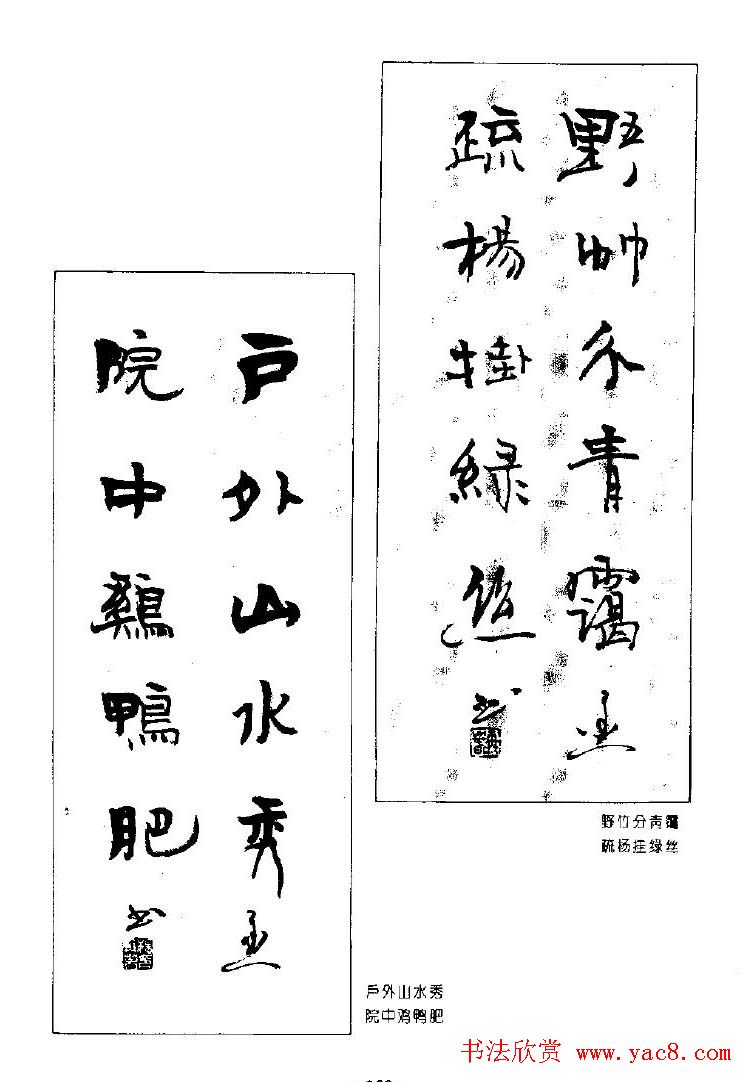 野竹分青靄
疏楊掛綠絲
书
戶外山水秀
院中鷄鴨肥
书
野竹分青靄
疏杨挂绿丝
戶外山水秀
院中鸡鸭肥
书法欣赏 www.yac8.com